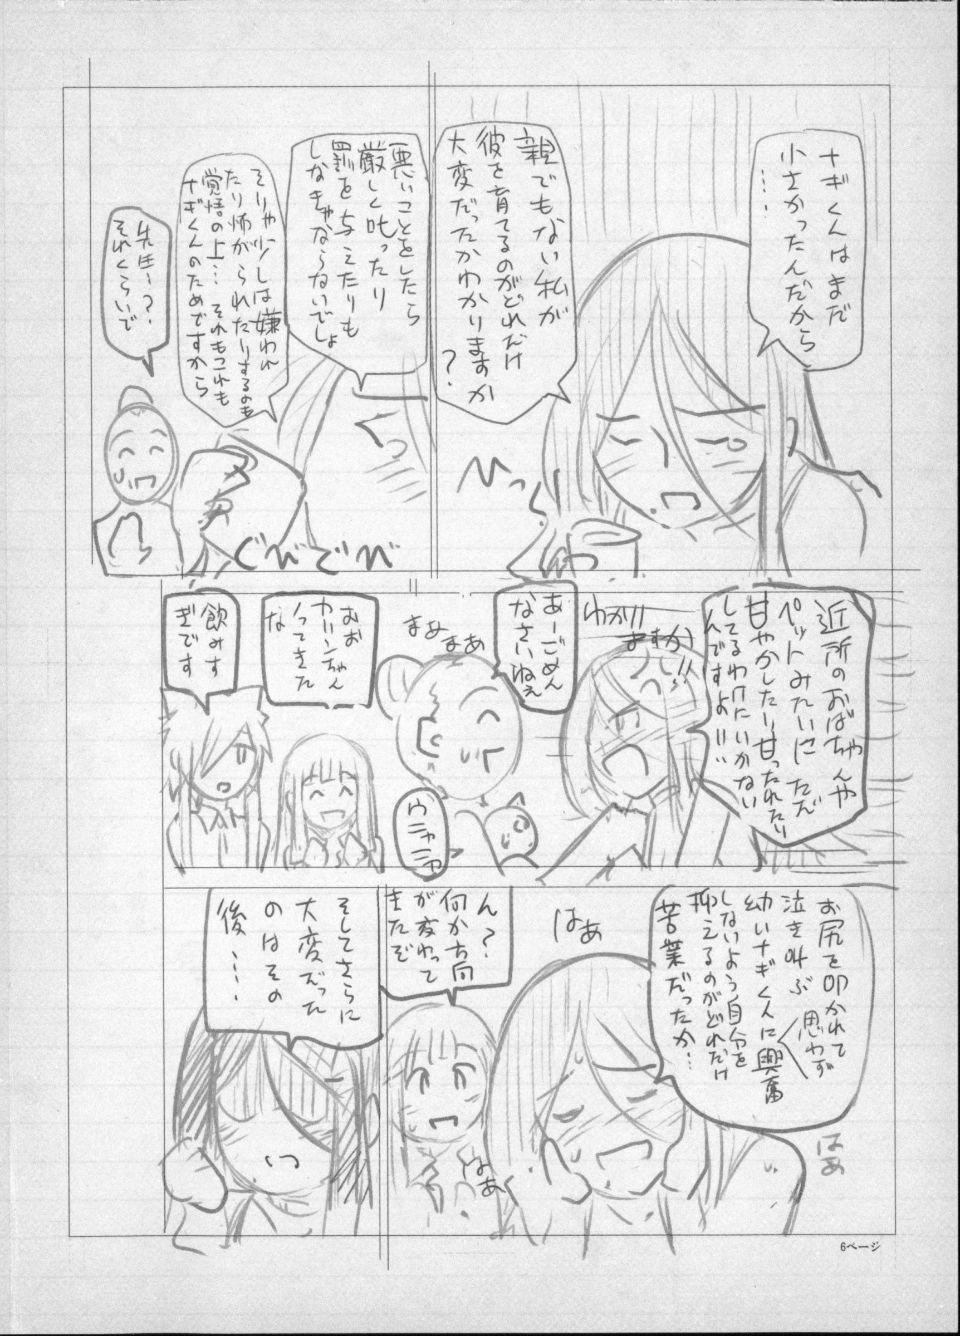 ナギくんはまだ
小さかったんだから
…
親でもない私が
彼を育てるのがどれだけ
大変だったかわかりますか
?
悪いことをしたら
厳しく叱ったり
罰を与えたりも
しなきゃならないでしょ
そりゃ少しは嫌われ
たり怖がられたりするのも
覚悟の上… それもこれも
ナギくんのためですから
先生…?
それくらいで
ひっ
ぐっ
ぐでんでん
近所のおばちゃんや
ペットみたいにただ
甘やかしたり甘ったれたり
してるわけにいかない
んですよ!!
わかり
ますか!!
あーごめん
なさいねぇ
まぁ
まぁ
ウニャニャ
おお
カリンちゃん
ノッてきた
な
飲みす
ぎです
お尻を叩かれて
泣き叫ぶ
幼いナギくんに思わず興奮
しないよう自分を
抑えるのがどれだけ
苦業だったか…
はぁ
はぁ
はぁ
ん?
何か方向
が変わって
きたぞ
そしてさらに
大変だった
のはその
後…
6ページ